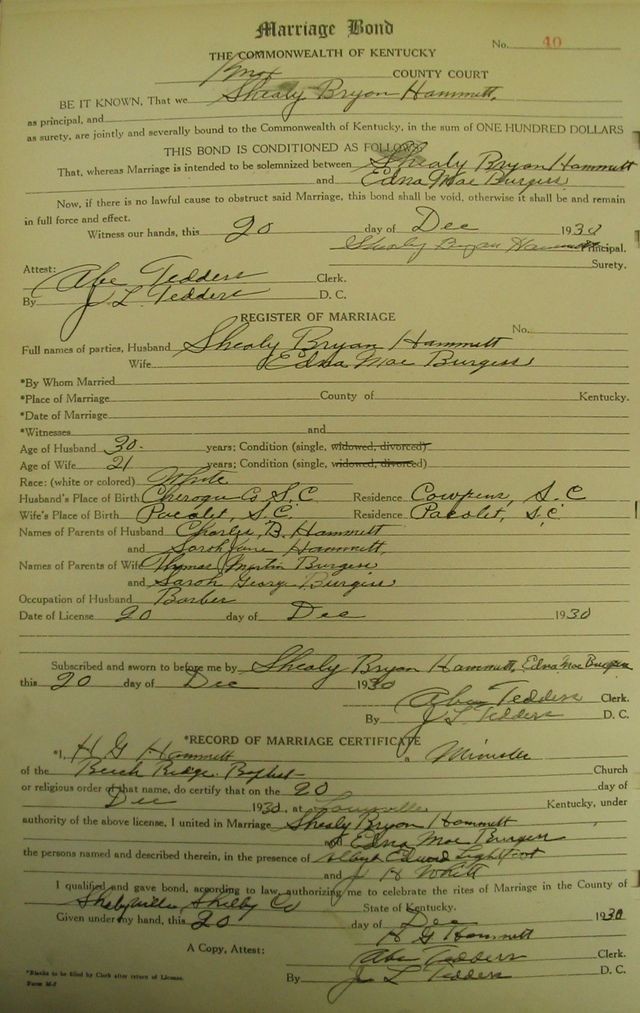 Marriage Bond
No. 40
THE COMMONWEALTH OF KENTUCKY
Knox COUNTY COURT
BE IT KNOWN, That we Shealy Bryan Hammett,
as principal, and
as surety, are jointly and severally bound to the Commonwealth of Kentucky, in the sum of ONE HUNDRED DOLLARS
THIS BOND IS CONDITIONED AS FOLLOWS
That, whereas Marriage is intended to be solemnized between Shealy Bryan Hammett
and Edna Mae Burgess
Now, if there is no lawful cause to obstruct said Marriage, this bond shall be void, otherwise it shall be and remain
in full force and effect.
Witness our hands, this 20 day of Dec 1930
Shealy Bryan Hammett Principal.
Surety.
Attest:
Abe Tedders Clerk.
By J L Tedders D. C.
REGISTER OF MARRIAGE
No.
Full names of parties, Husband Shealy Bryan Hammett
Wife Edna Mae Burgess
*By Whom Married
*Place of Marriage County of Kentucky.
*Date of Marriage
*Witnesses and
Age of Husband 30 years; Condition (single, widowed, divorced)
Age of Wife 21 years; Condition (single, widowed, divorced)
Race: (white or colored) White
Husband's Place of Birth Cheroque Co S.C Residence Cowpens, S.C
Wife's Place of Birth Pacolet, S.C. Residence Pacolet, S.C.
Names of Parents of Husband Charlie B. Hammett
and Sarah Jane Hammett,
Names of Parents of Wife Thomas Martin Burgess
and Sarah George Burgess
Occupation of Husband Barber
Date of License 20 day of Dec 1930
Subscribed and sworn to before me by Shealy Bryan Hammett, Edna Mae Burgess
this 20 day of Dec 1930
Abe Tedders Clerk.
By J L Tedders D. C.
*RECORD OF MARRIAGE CERTIFICATE
*I, H G Hammett a Minister
of the Beech Ridge Baptist Church
or religious order of that name, do certify that on the 20 day of
Dec 1930, at Louisville Kentucky, under
authority of the above license, I united in Marriage Shealy Bryan Hammett
and Edna Mae Burgess
the persons named and described therein, in the presence of Edward Lightfoot
and J H White
I qualified and gave bond, according to law, authorizing me to celebrate the rites of Marriage in the County of
Shelbyville, Shelby Co State of Kentucky.
Given under my hand, this 20 day of Dec 1930
H G Hammett
A Copy, Attest: Abe Tedders Clerk.
By J L Tedders D. C.
*Blanks to be filled by Clerk after return of License.